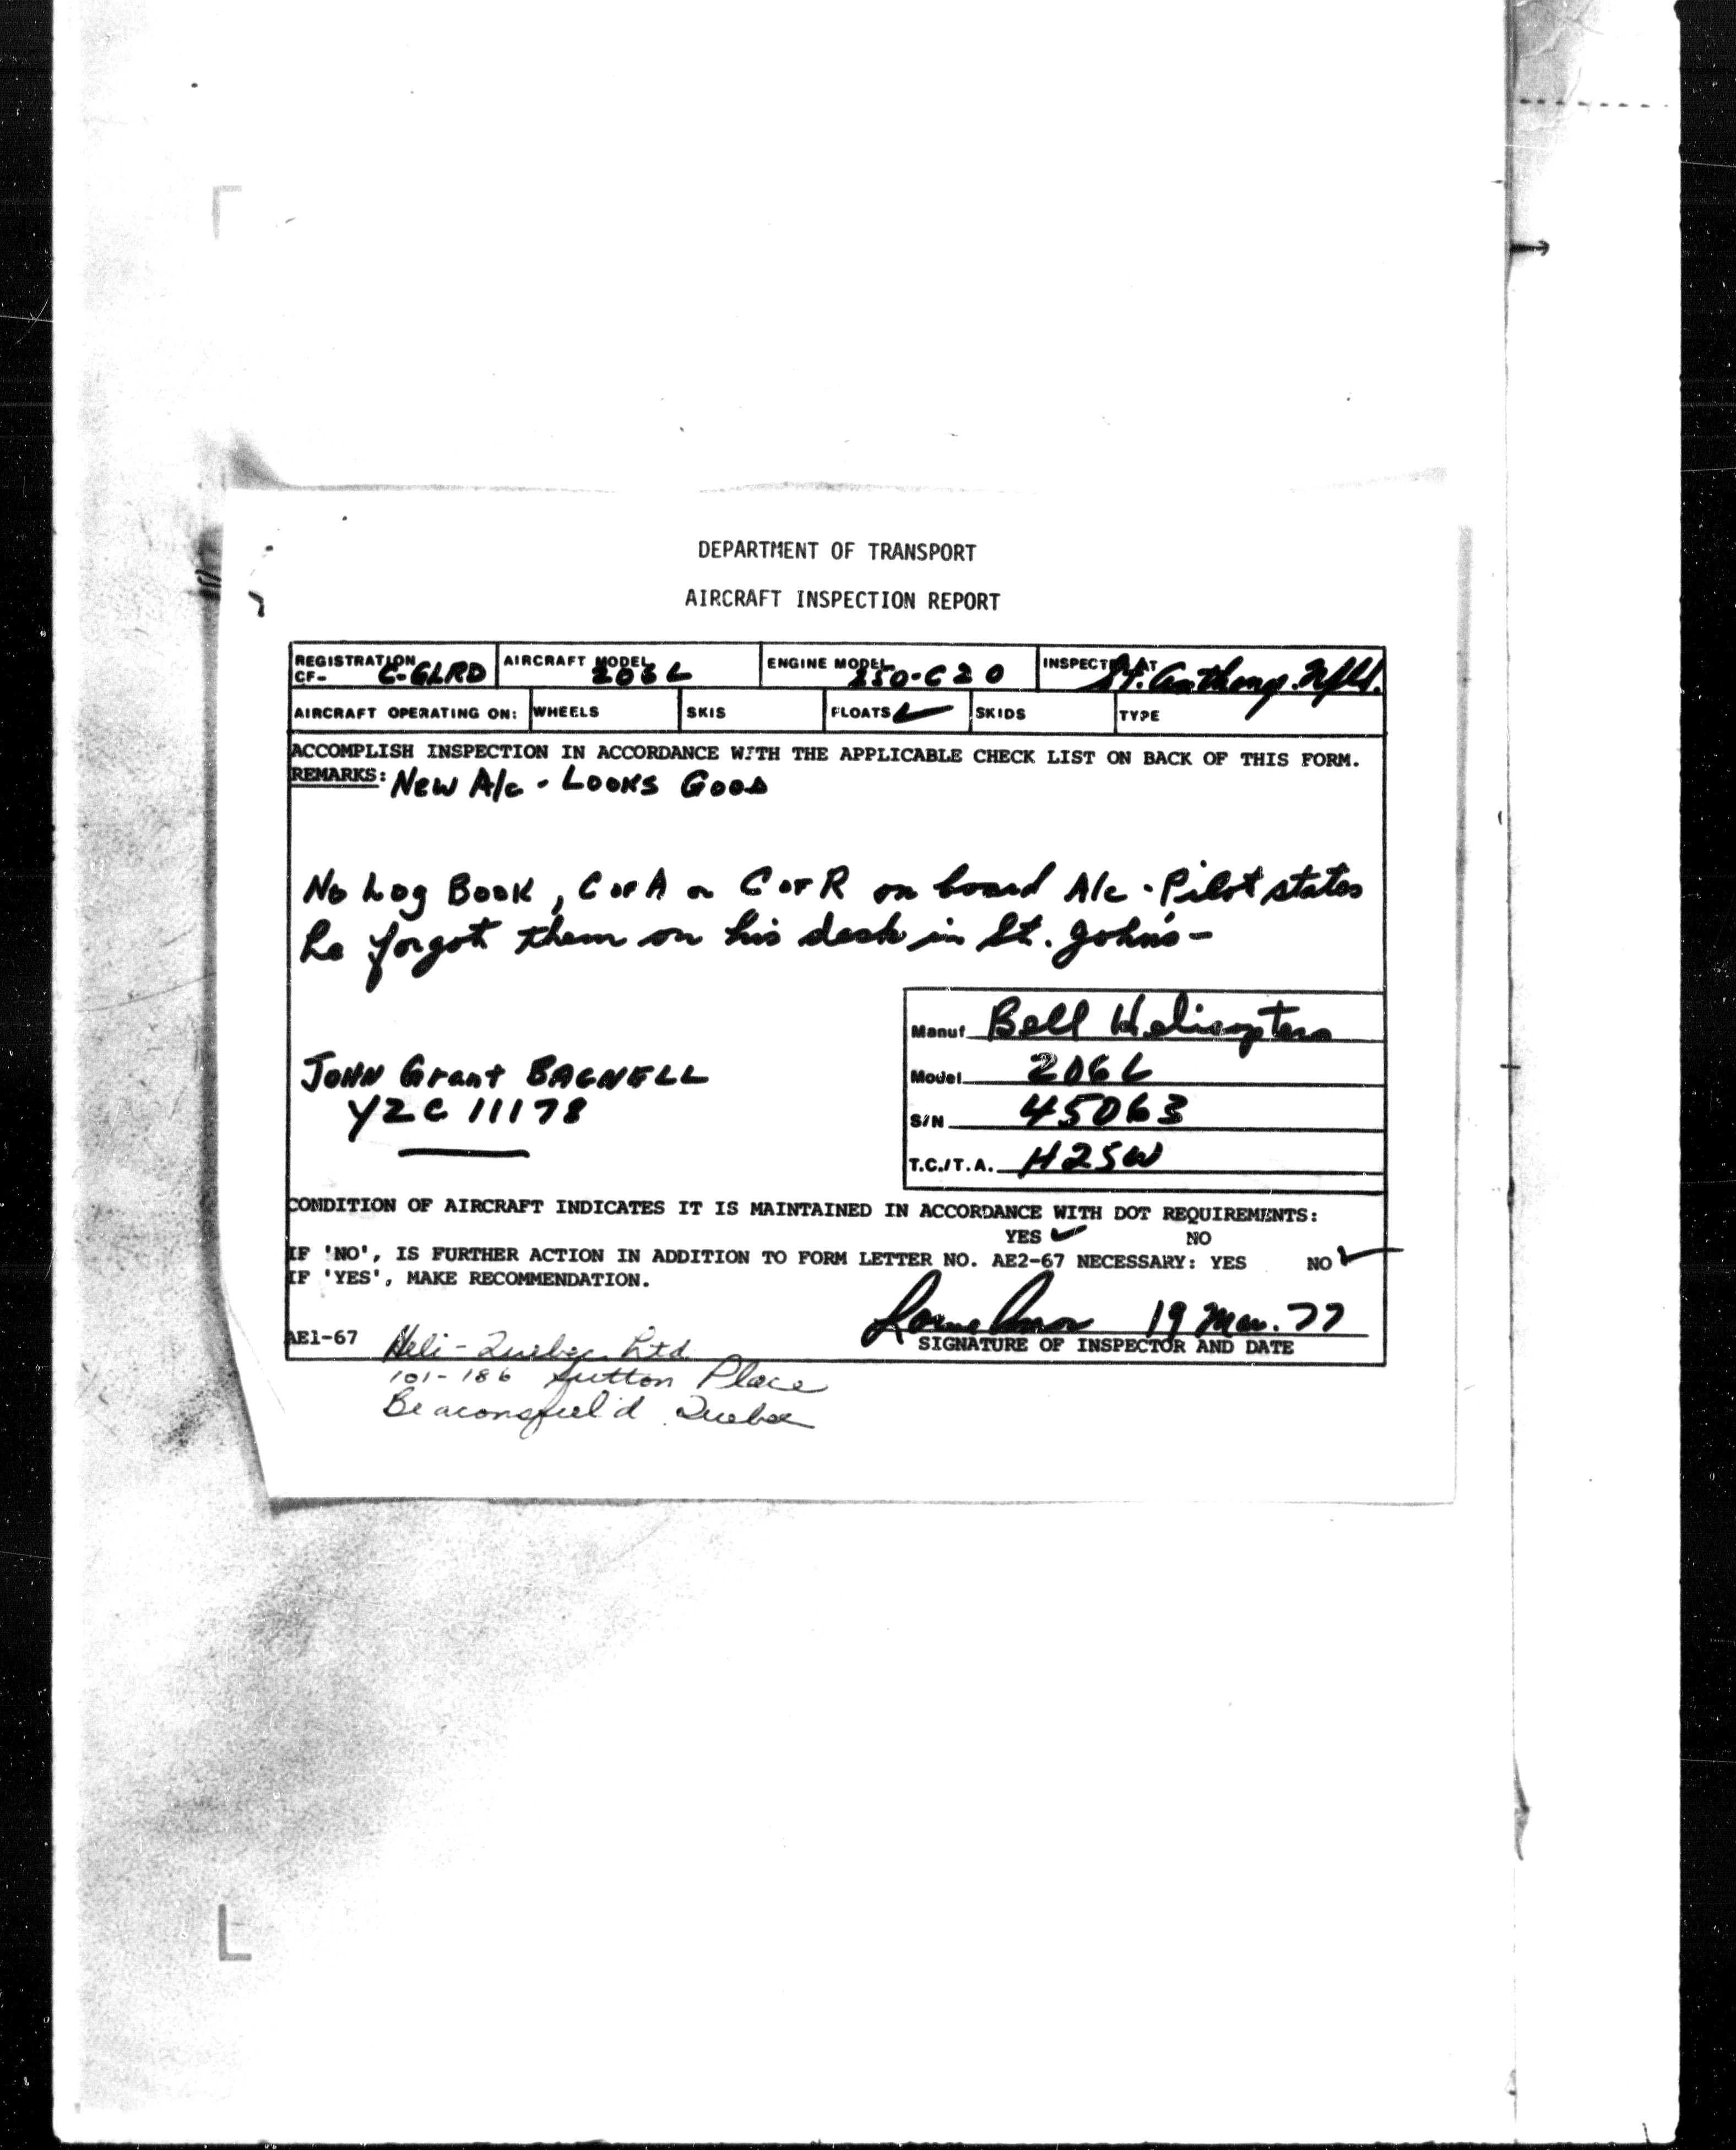 DEPARTMENT OF TRANSPORT
AIRCRAFT INSPECTION REPORT
REGISTRATION CF- C-GLRD AIRCRAFT MODEL 206L ENGINE MODEL 250-C20 INSPECTED AT St. Anthony. Nfld.
AIRCRAFT OPERATING ON: WHEELS SKIS FLOATS ✓ SKIDS TYPE
ACCOMPLISH INSPECTION IN ACCORDANCE WITH THE APPLICABLE CHECK LIST ON BACK OF THIS FORM.
REMARKS: New A/c - Looks Good
No Log Book, C of A or C of R on board A/c - Pilot states
he forgot them on his desk in St. John's -
Manuf Bell Helicopters
John Grant BAGNELL
Model 206L
YZC 11178
S/N 45063
T.C./T.A. H2SW
CONDITION OF AIRCRAFT INDICATES IT IS MAINTAINED IN ACCORDANCE WITH DOT REQUIREMENTS:
YES ✓ NO
IF 'NO', IS FURTHER ACTION IN ADDITION TO FORM LETTER NO. AE2-67 NECESSARY: YES NO ✓
IF 'YES', MAKE RECOMMENDATION.
19 Mar. 77
AE1-67 SIGNATURE OF INSPECTOR AND DATE
Heli-Quebec Ltd
101-186 Sutton Place
Beaconsfield Quebec
L